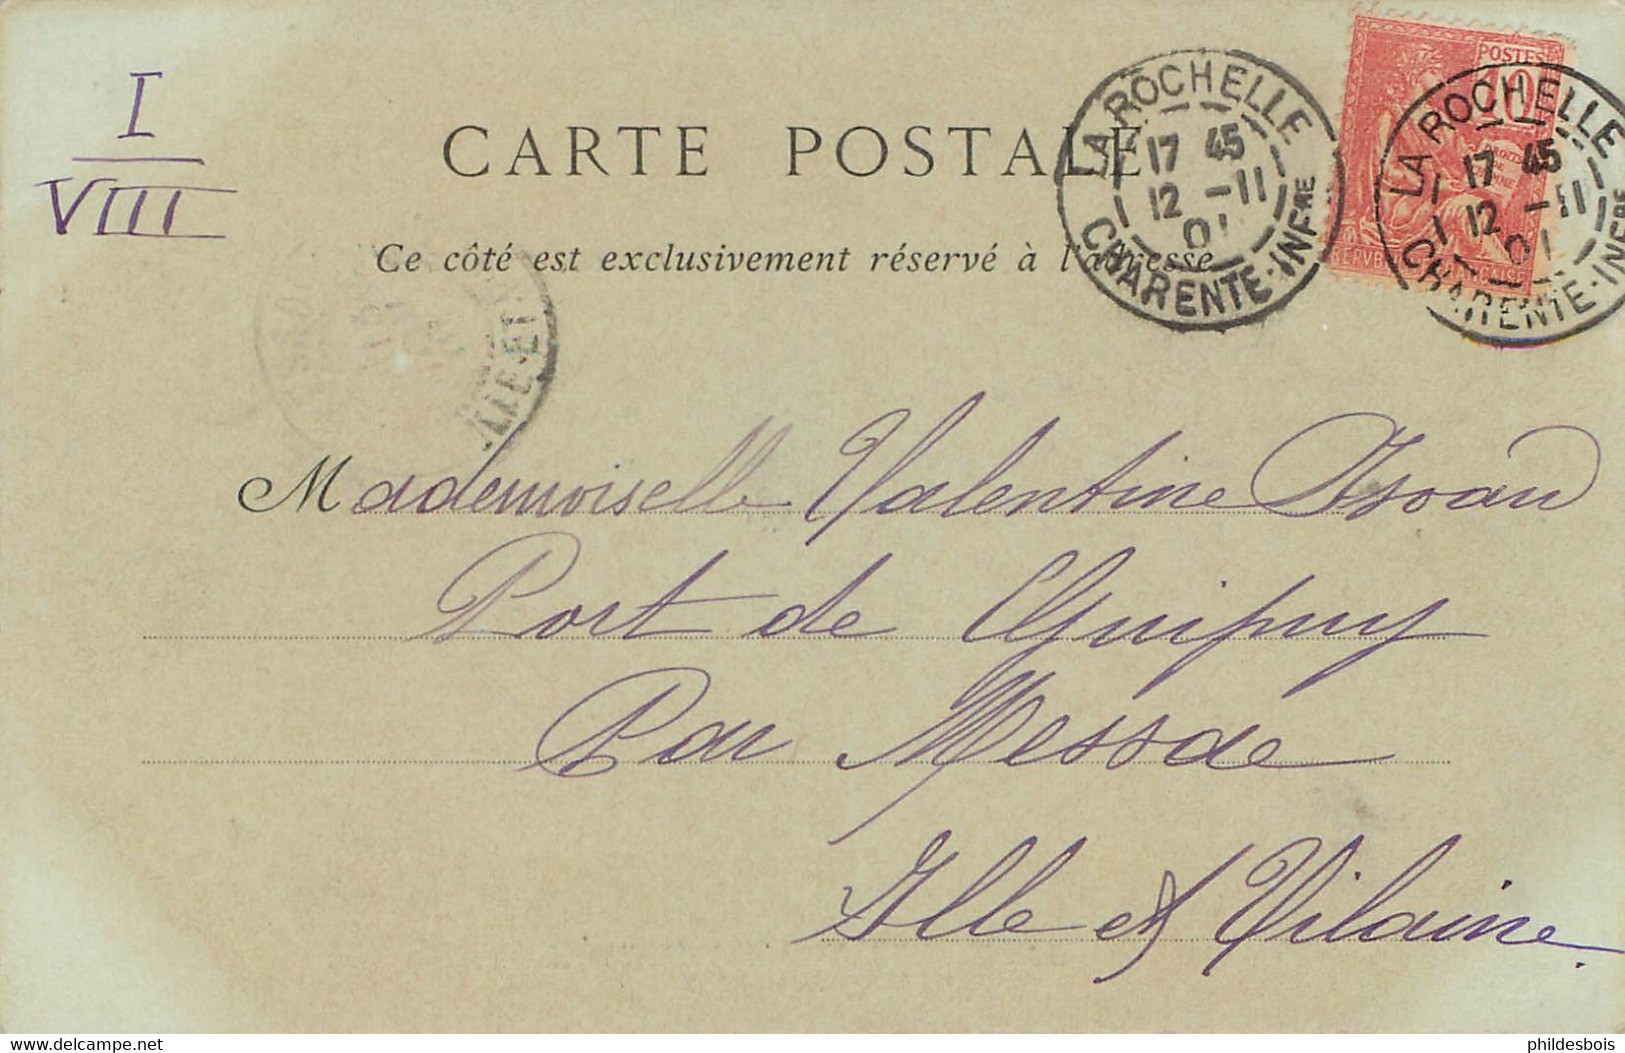 I
VIII
CARTE POSTALE
Ce côté est exclusivement réservé à l'adresse
LA ROCHELLE
17 45
12 -11
01
CHARENTE-INFRE
POSTES
10
LA ROCHELLE
17 45
12 -11
01
CHARENTE-INFRE
Mademoiselle Valentine
Port de Guipuy
Par Messac
Ille et Vilaine
phildesbois